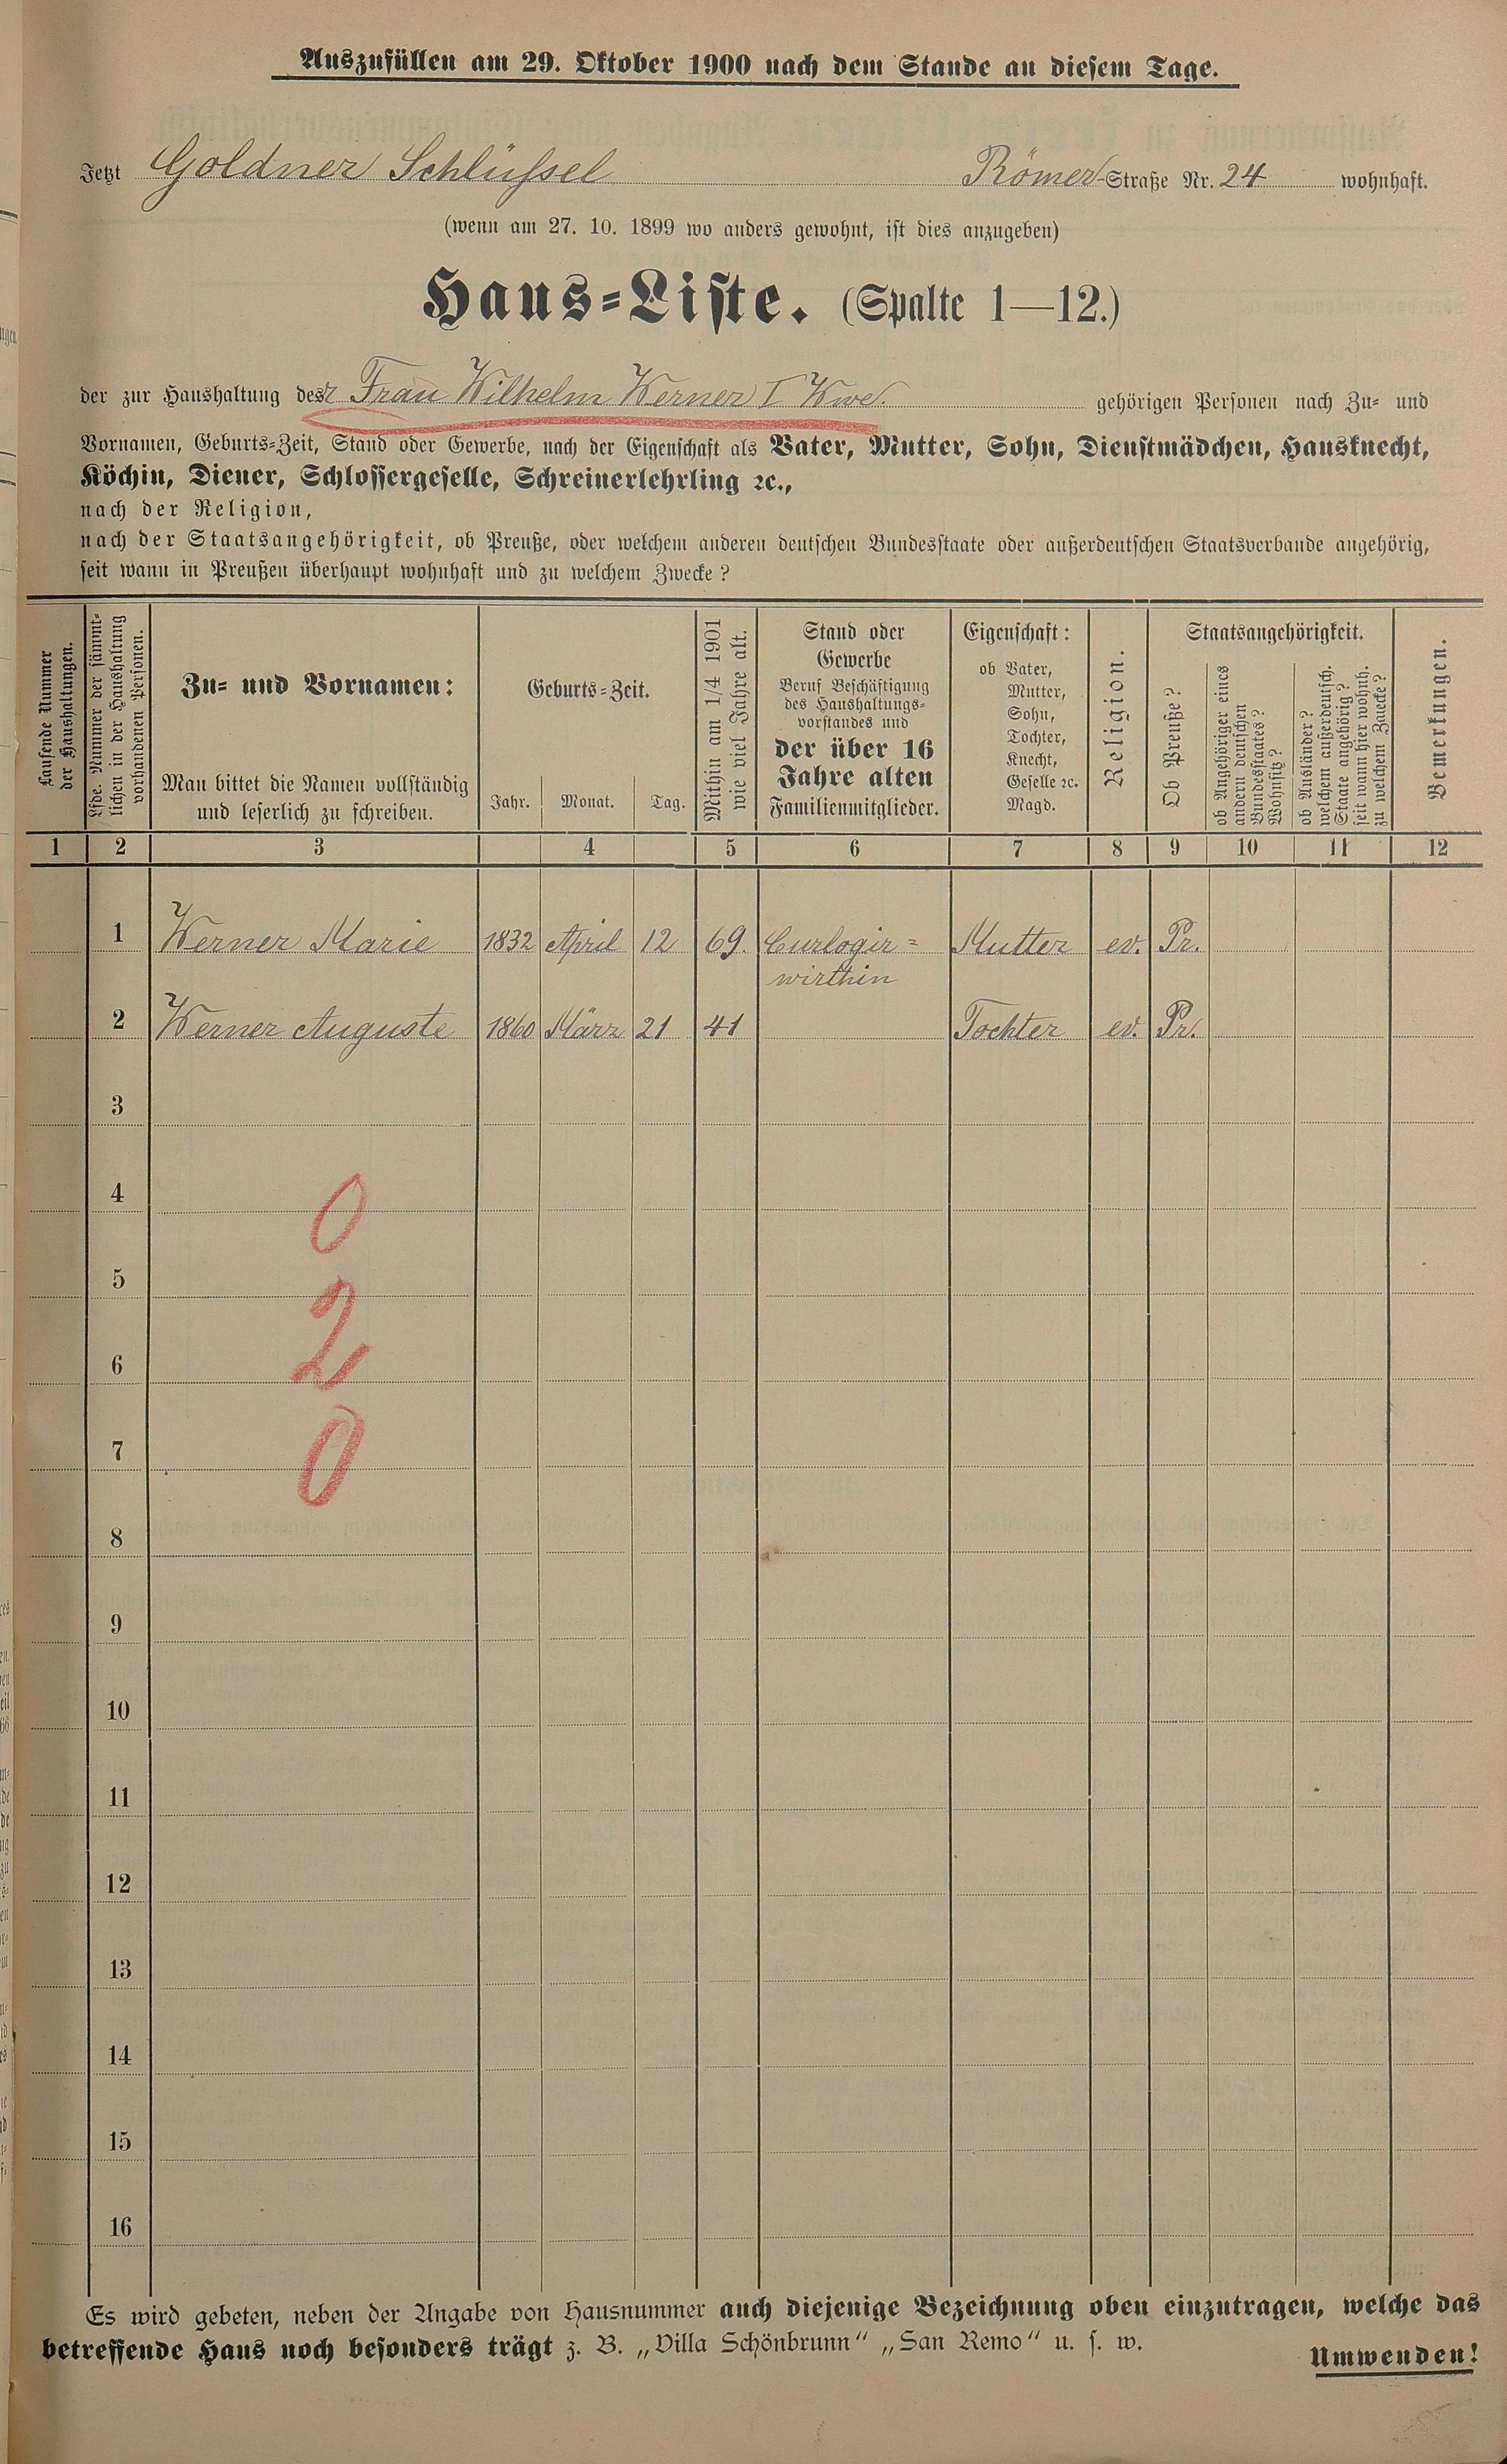 Auszufüllen am 29. Oktober 1900 nach dem Stande an diesem Tage.
Jetzt Goldner Schlüssel Römer-Straße Nr. 24 wohnhaft.
(wenn am 27. 10. 1899 wo anders gewohnt, ist dies anzugeben)
Haus-Liste. (Spalte 1—12.)
der zur Haushaltung der Frau Wilhelm Werner I Wwe. gehörigen Personen nach Zu- und
Vornamen, Geburts-Zeit, Stand oder Gewerbe, nach der Eigenschaft als Vater, Mutter, Sohn, Dienstmädchen, Hausknecht,
Köchin, Diener, Schlossergeselle, Schreinerlehrling ꝛc.,
nach der Religion,
nach der Staatsangehörigkeit, ob Preuße, oder welchem anderen deutschen Bundesstaate oder außerdeutschen Staatsverbande angehörig,
seit wann in Preußen überhaupt wohnhaft und zu welchem Zwecke?
Laufende Nummer
der Haushaltungen.
Lfde. Nummer der sämmt-
lichen in der Haushaltung
vorhandenen Personen.
Zu- und Vornamen:
Man bittet die Namen vollständig
und leserlich zu schreiben.
Geburts-Zeit.
Jahr. Monat. Tag.
Mithin am 1/4 1901
wie viel Jahre alt.
Stand oder
Gewerbe
Beruf Beschäftigung
des Haushaltungs-
vorstandes und
der über 16
Jahre alten
Familienmitglieder.
Eigenschaft:
ob Vater,
Mutter,
Sohn,
Tochter,
Knecht,
Geselle ꝛc.
Magd.
Religion.
Staatsangehörigkeit.
Ob Preuße?
ob Angehöriger eines
andern deutschen
Bundesstaates?
Wohnsitz?
ob Ausländer?
welchem außerdeutsch.
Staate angehörig?
seit wann hier wohnh.
zu welchem Zwecke?
Bemerkungen.
1 2 3 4 5 6 7 8 9 10 11 12
1 Werner Marie 1832 April 12 69. Curlogir=
wirthin Mutter ev. Pr.
2 Werner Auguste 1860 März 21 41 Tochter ev. Pr.
3
4
0
5
2
6
7
0
8
9
10
11
12
13
14
15
16
Es wird gebeten, neben der Angabe von Hausnummer auch diejenige Bezeichnung oben einzutragen, welche das
betreffende Haus noch besonders trägt z. B. „Villa Schönbrunn" „San Remo" u. s. w.
Umwenden!